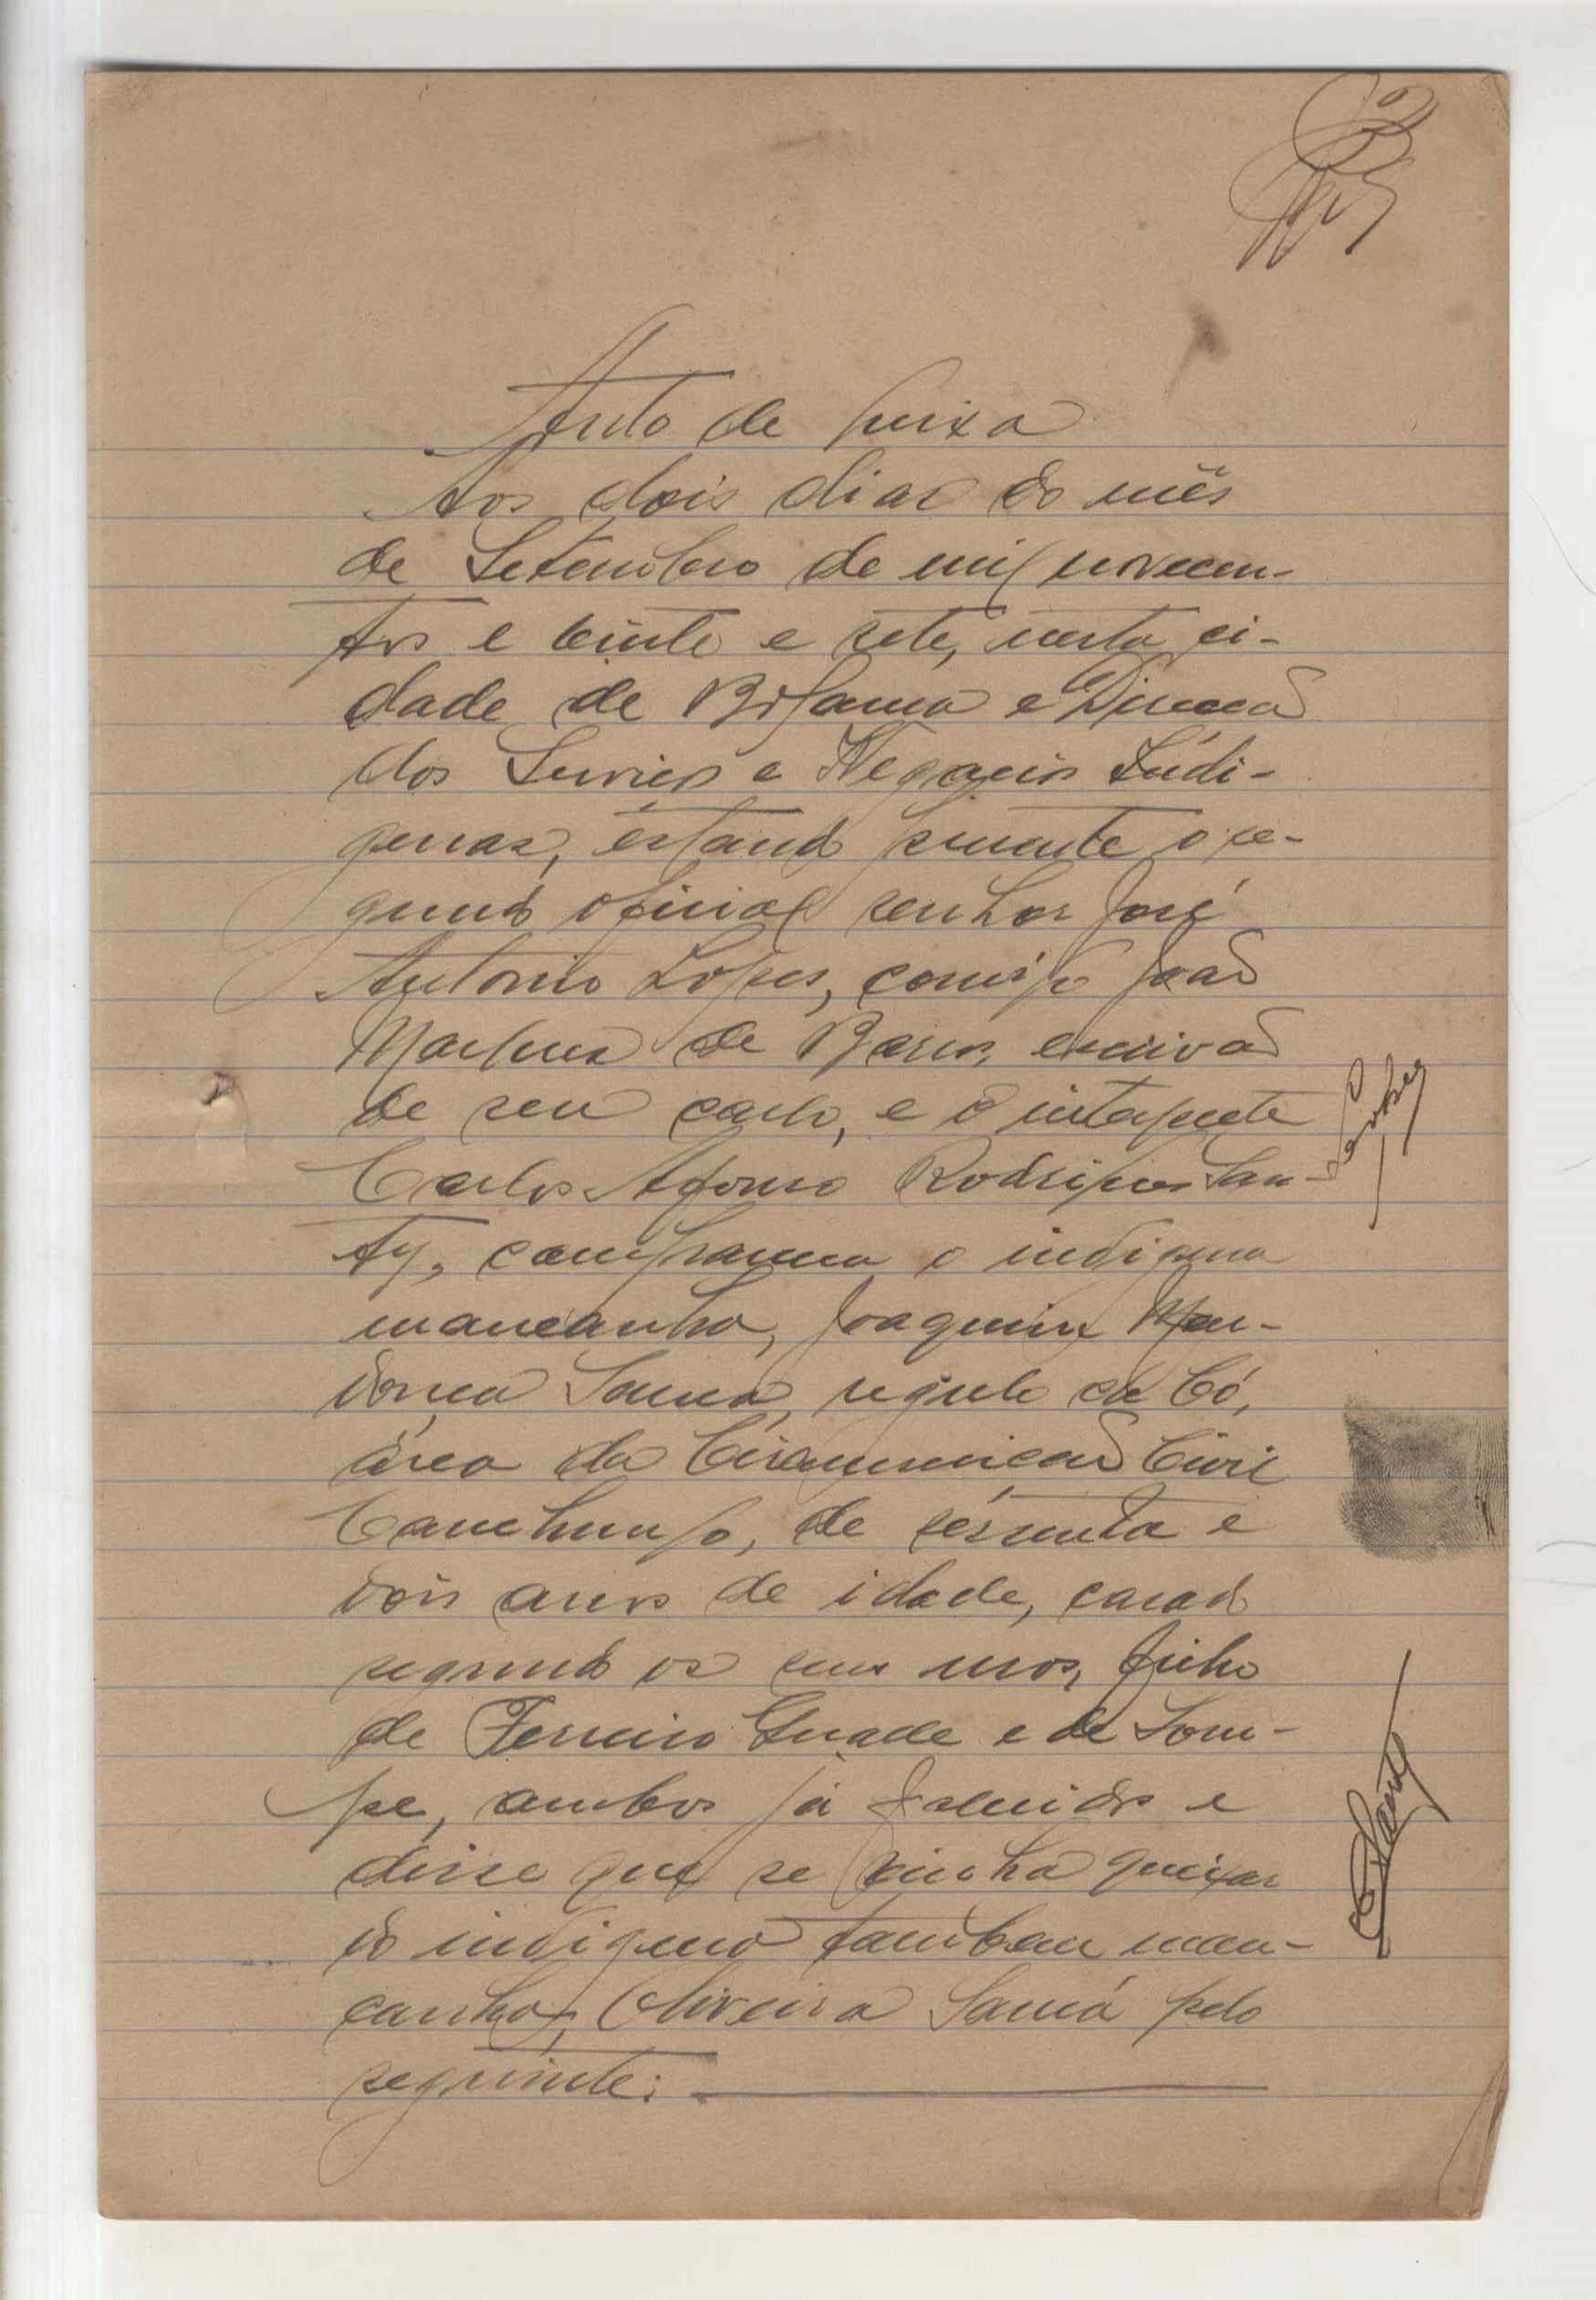 2
Auto de queixa
Aos dois dias do mês
de Setembro de mil novecen-
tos e vinte e sete, nesta ci-
dade de Bolama e Direcção
dos Serviços e Negocios Indi-
genas, estando presente o se-
gundo oficial senhor José
Antonio Lopes, comigo João
Martins de Barros, escrivão
de seu cargo, e o interprete
Carlos Afonso Rodrigues San-
ty, compareceu o indigena
mancanha, Joaquim Men-
donça Samá, regulo de Có,
área da Circunscrição Civil
Canchungo, de sessenta e
dois anos de idade, casado
segundo os seus usos, filho
de Ferreiro Guade e de Som-
pe, ambos já falecidos e
disse que se vinha queixar
do indigena tambem man-
canha, Oliveira Samá pelo
seguinte: